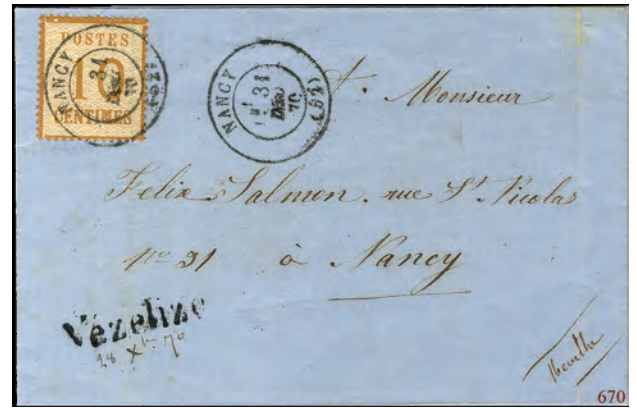 POSTES
10
CENTIMES
NANCY
31
DÉC
70
NANCY
31
DÉC
70
(52)
Monsieur
Felix Salmon. rue St Nicolas
no 31 à Nancy
Vézelize
28 Xbre 70
Meurthe
670